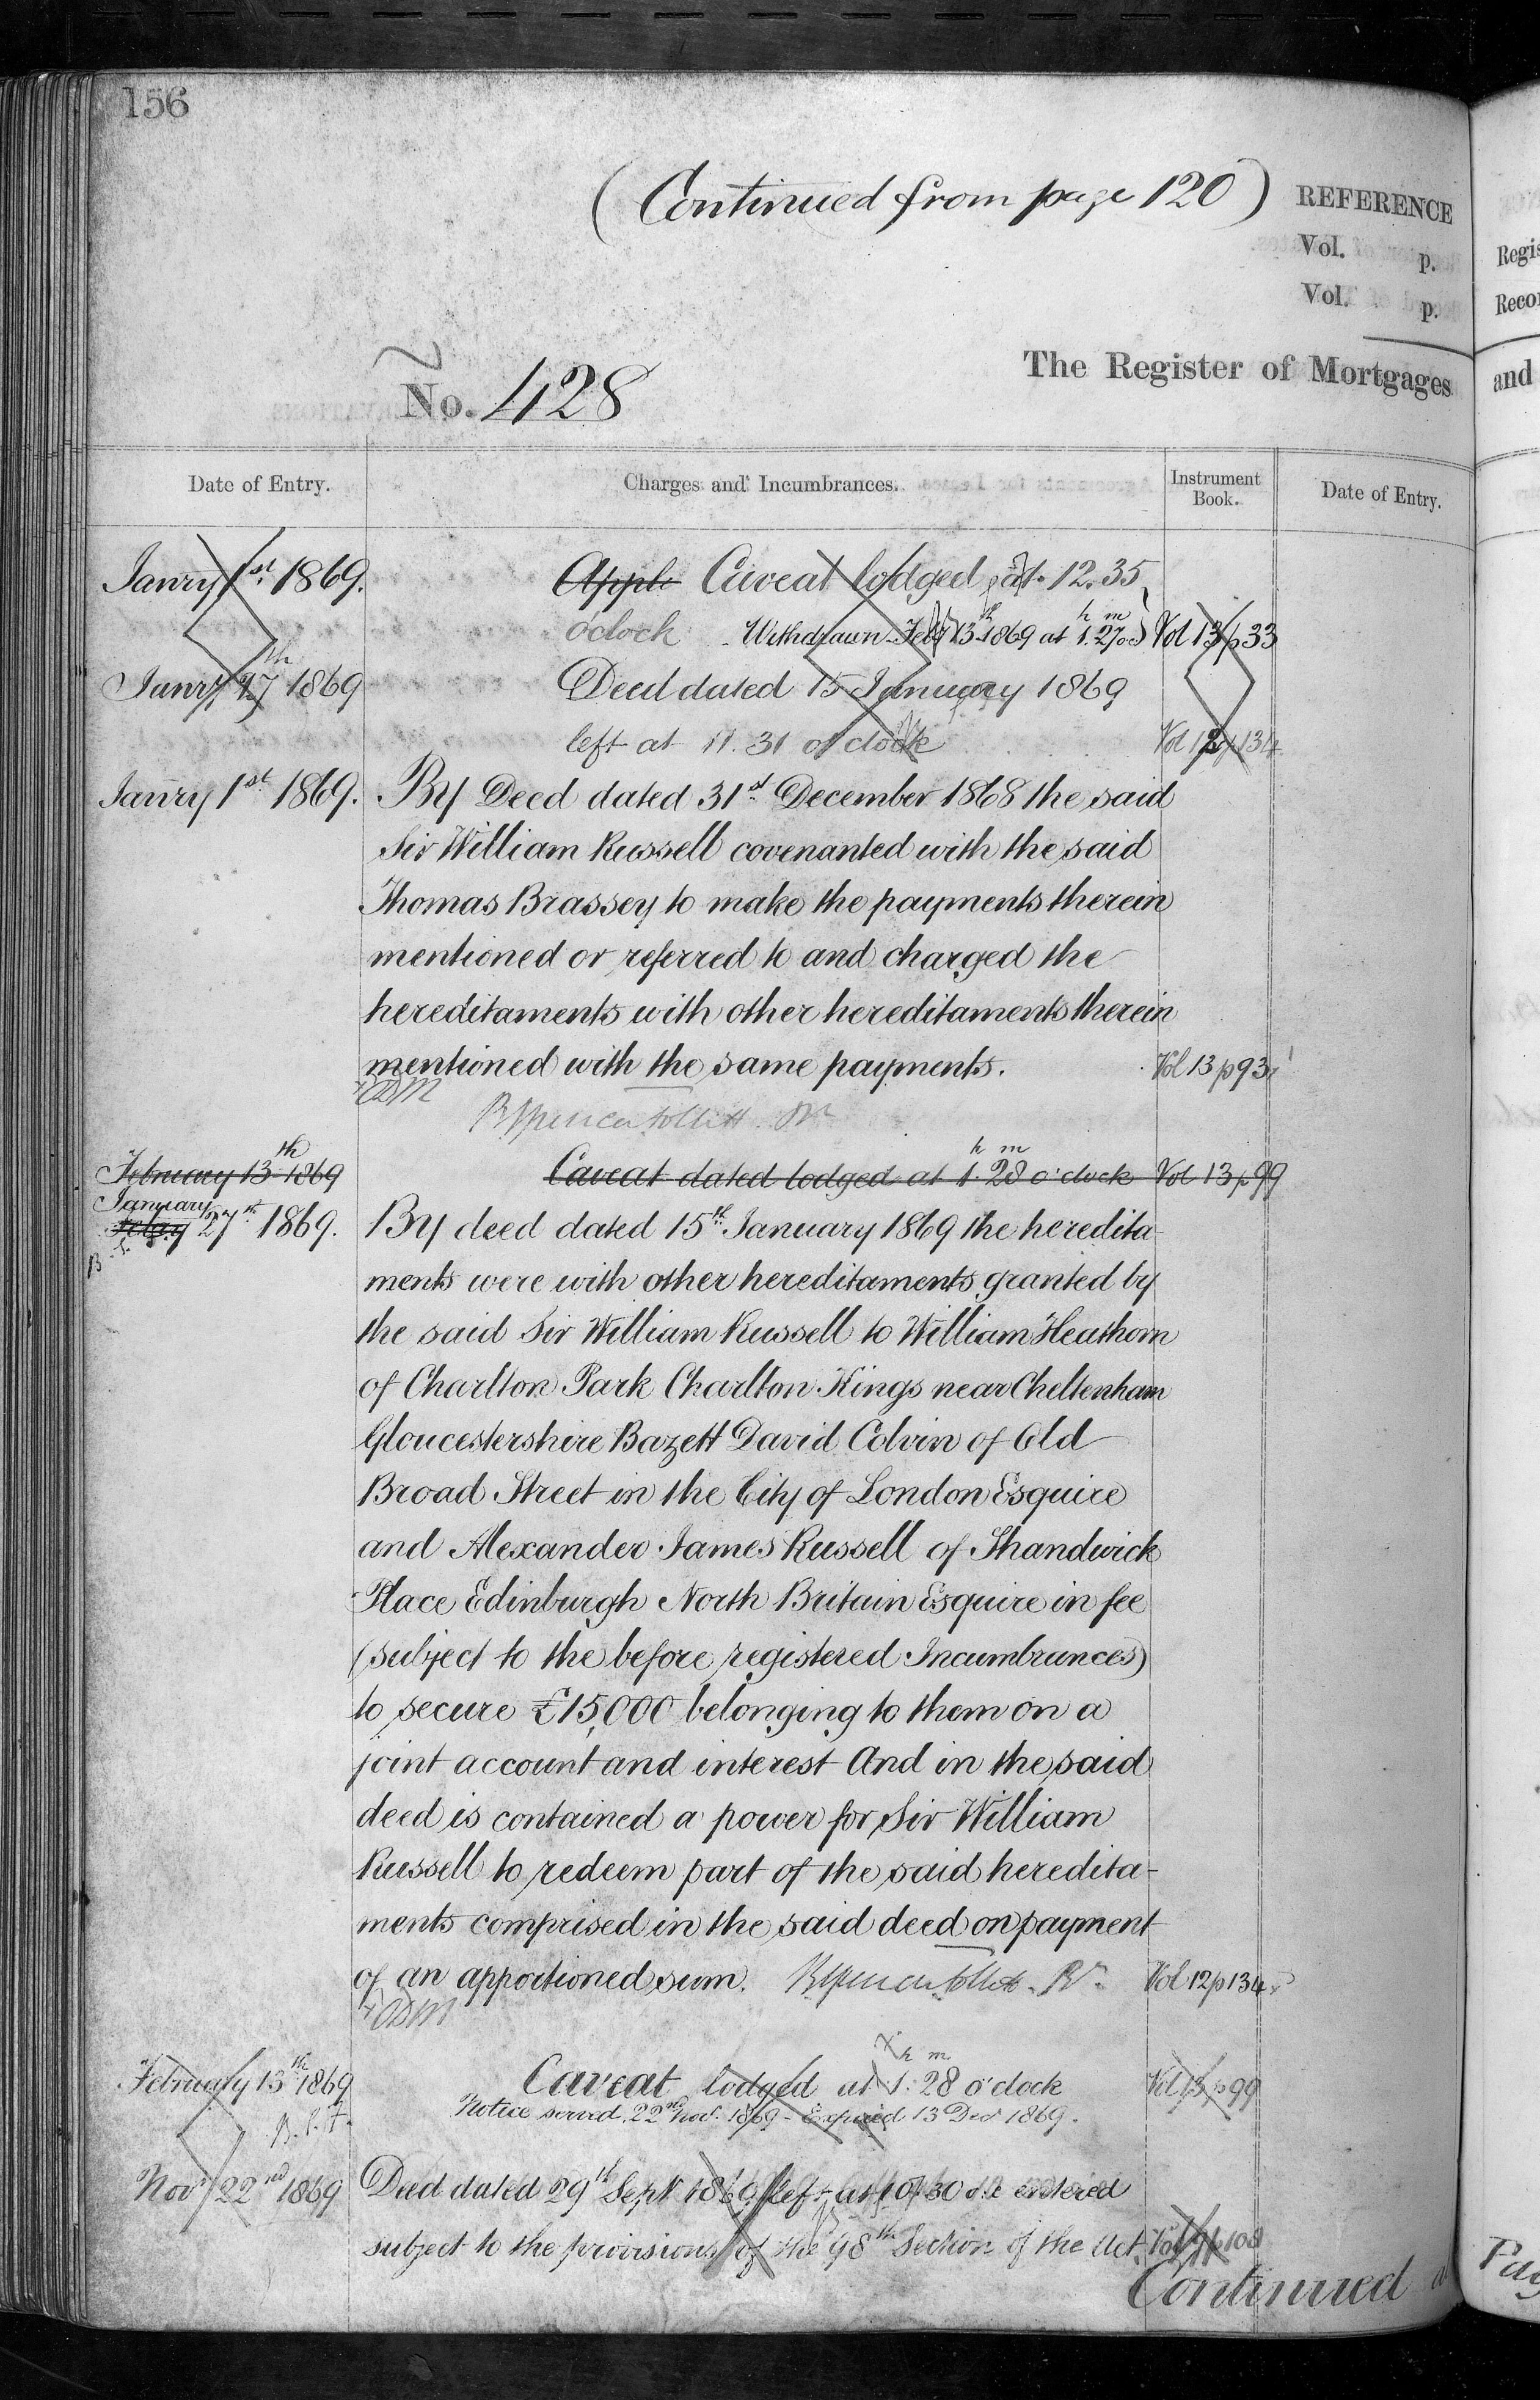 156
(Continued from page 120)
REFERENCE
Vol. p.
Vol. p.
No. 428
The Register of Mortgages
Date of Entry.
Charges and Incumbrances.
Instrument Book.
Date of Entry.
Janry 1st 1869. Apple Caveat lodged at 12.35
o'clock Withdrawn Feby 13th 1869 at 1h 27m Vol 13 p 33
Janry 27th 1869 Deed dated 15 January 1869
left at 11.31 o'clock Vol 12 p 134
Janry 1st 1869. By Deed dated 31st December 1868 the said
Sir William Russell covenanted with the said
Thomas Brassey to make the payments therein
mentioned or referred to and charged the
hereditaments with other hereditaments therein
mentioned with the same payments. Vol 13 p 93
February 13th 1869 Caveat dated lodged at 1h 28m o'clock Vol 13 p 99
January
Feby 27th 1869. By deed dated 15th January 1869 the heredita-
ments were with other hereditaments granted by
the said Sir William Russell to William Heathorn
of Charlton Park Charlton Kings near Cheltenham
Gloucestershire Bazett David Colvin of Old
Broad Street in the City of London Esquire
and Alexander James Russell of Shandwick
Place Edinburgh North Britain Esquire in fee
(subject to the before registered Incumbrances)
to secure £15,000 belonging to them on a
joint account and interest And in the said
deed is contained a power for Sir William
Russell to redeem part of the said heredita-
ments comprised in the said deed on payment
of an apportioned sum. Vol 12 p 134
February 13th 1869 Caveat lodged at 1h 28m o'clock Vol 13 p 99
Notice served 22nd Nov. 1869 - Expired 13 Decr 1869.
Novr 22nd 1869 Deed dated 29th Sept left at 10.30 entered
subject to the provisions of the 98th Section of the Act. Vol p 108
Continued
Regis
Recor
and